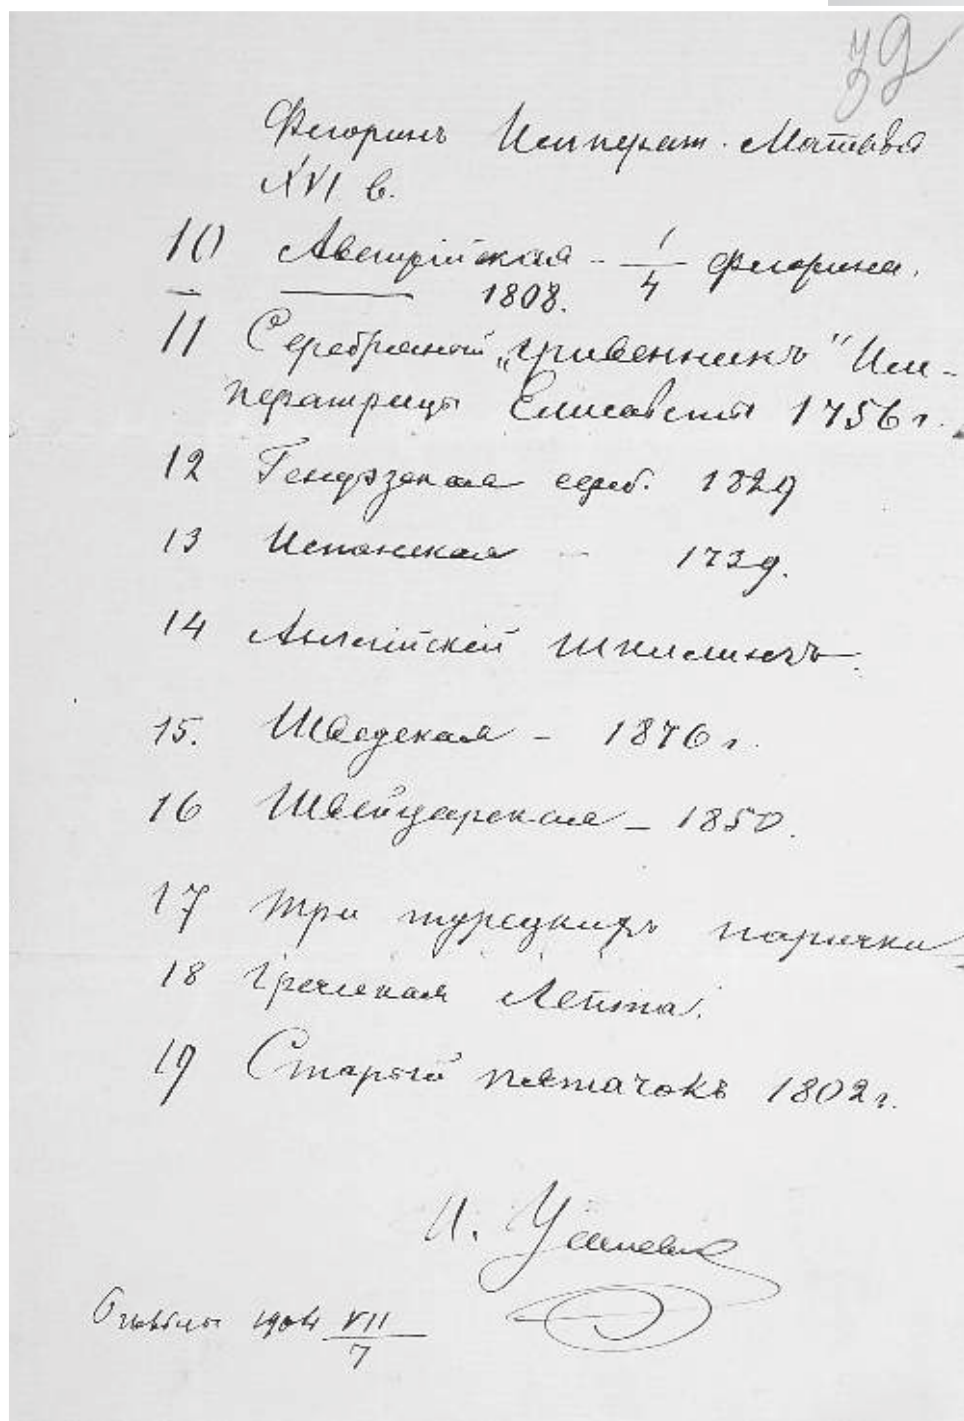 39
Флоринъ Императ. Матвѣя
XVI в.
10 Австрійская - 1/4 флорина.
1808.
11 Серебряный „гривенникъ" Им-
ператрицы Елисаветы 1756 г.
12 Генуэзская сереб. 1829
13 Испанская - 1739.
14 Англійскій шиллингъ.
15. Шведская - 1876 г.
16 Швейцарская - 1850.
17 Три турецкихъ парички
18 Греческая Лепта.
19 Старый пятачокъ 1802 г.
И.
1904 VII/7